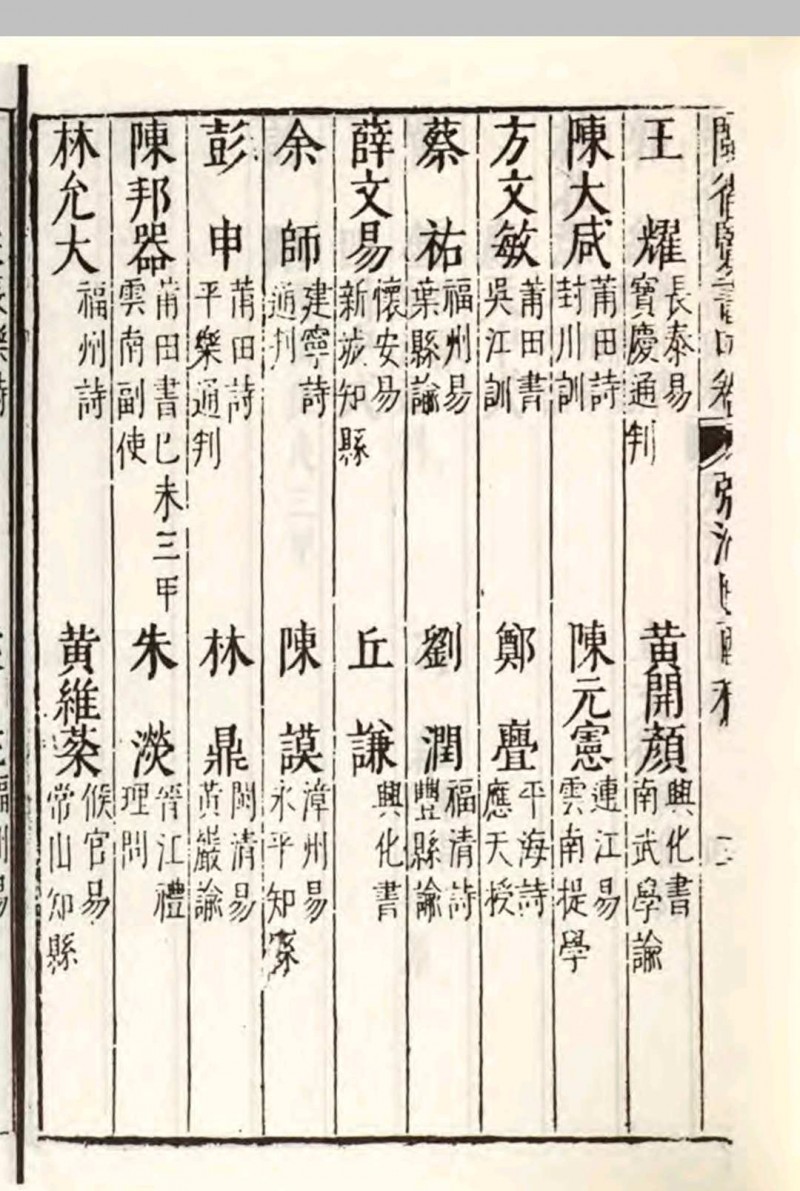 王耀 長泰易 寶慶通判 黃開顏 興化書 南武學諭
陳大咸 莆田詩 封川訓 陳元憲 連江易 雲南提學
方文敏 莆田書 吳江訓 鄭疊 平海詩 應天授
蔡祐 福州易 葉縣諭 劉潤 福清詩 豐縣諭
薛文易 懷安易 新城知縣 丘謙 興化書
余師 建寧詩 通判 陳謨 漳州易 永平知縣
彭申 莆田詩 平樂通判 林鼎 閩清易 黃巖諭
陳邦器 莆田書已未三甲 雲南副使 朱濙 晉江禮 理問
林允大 福州詩 黃維蘂 候官易 常山知縣